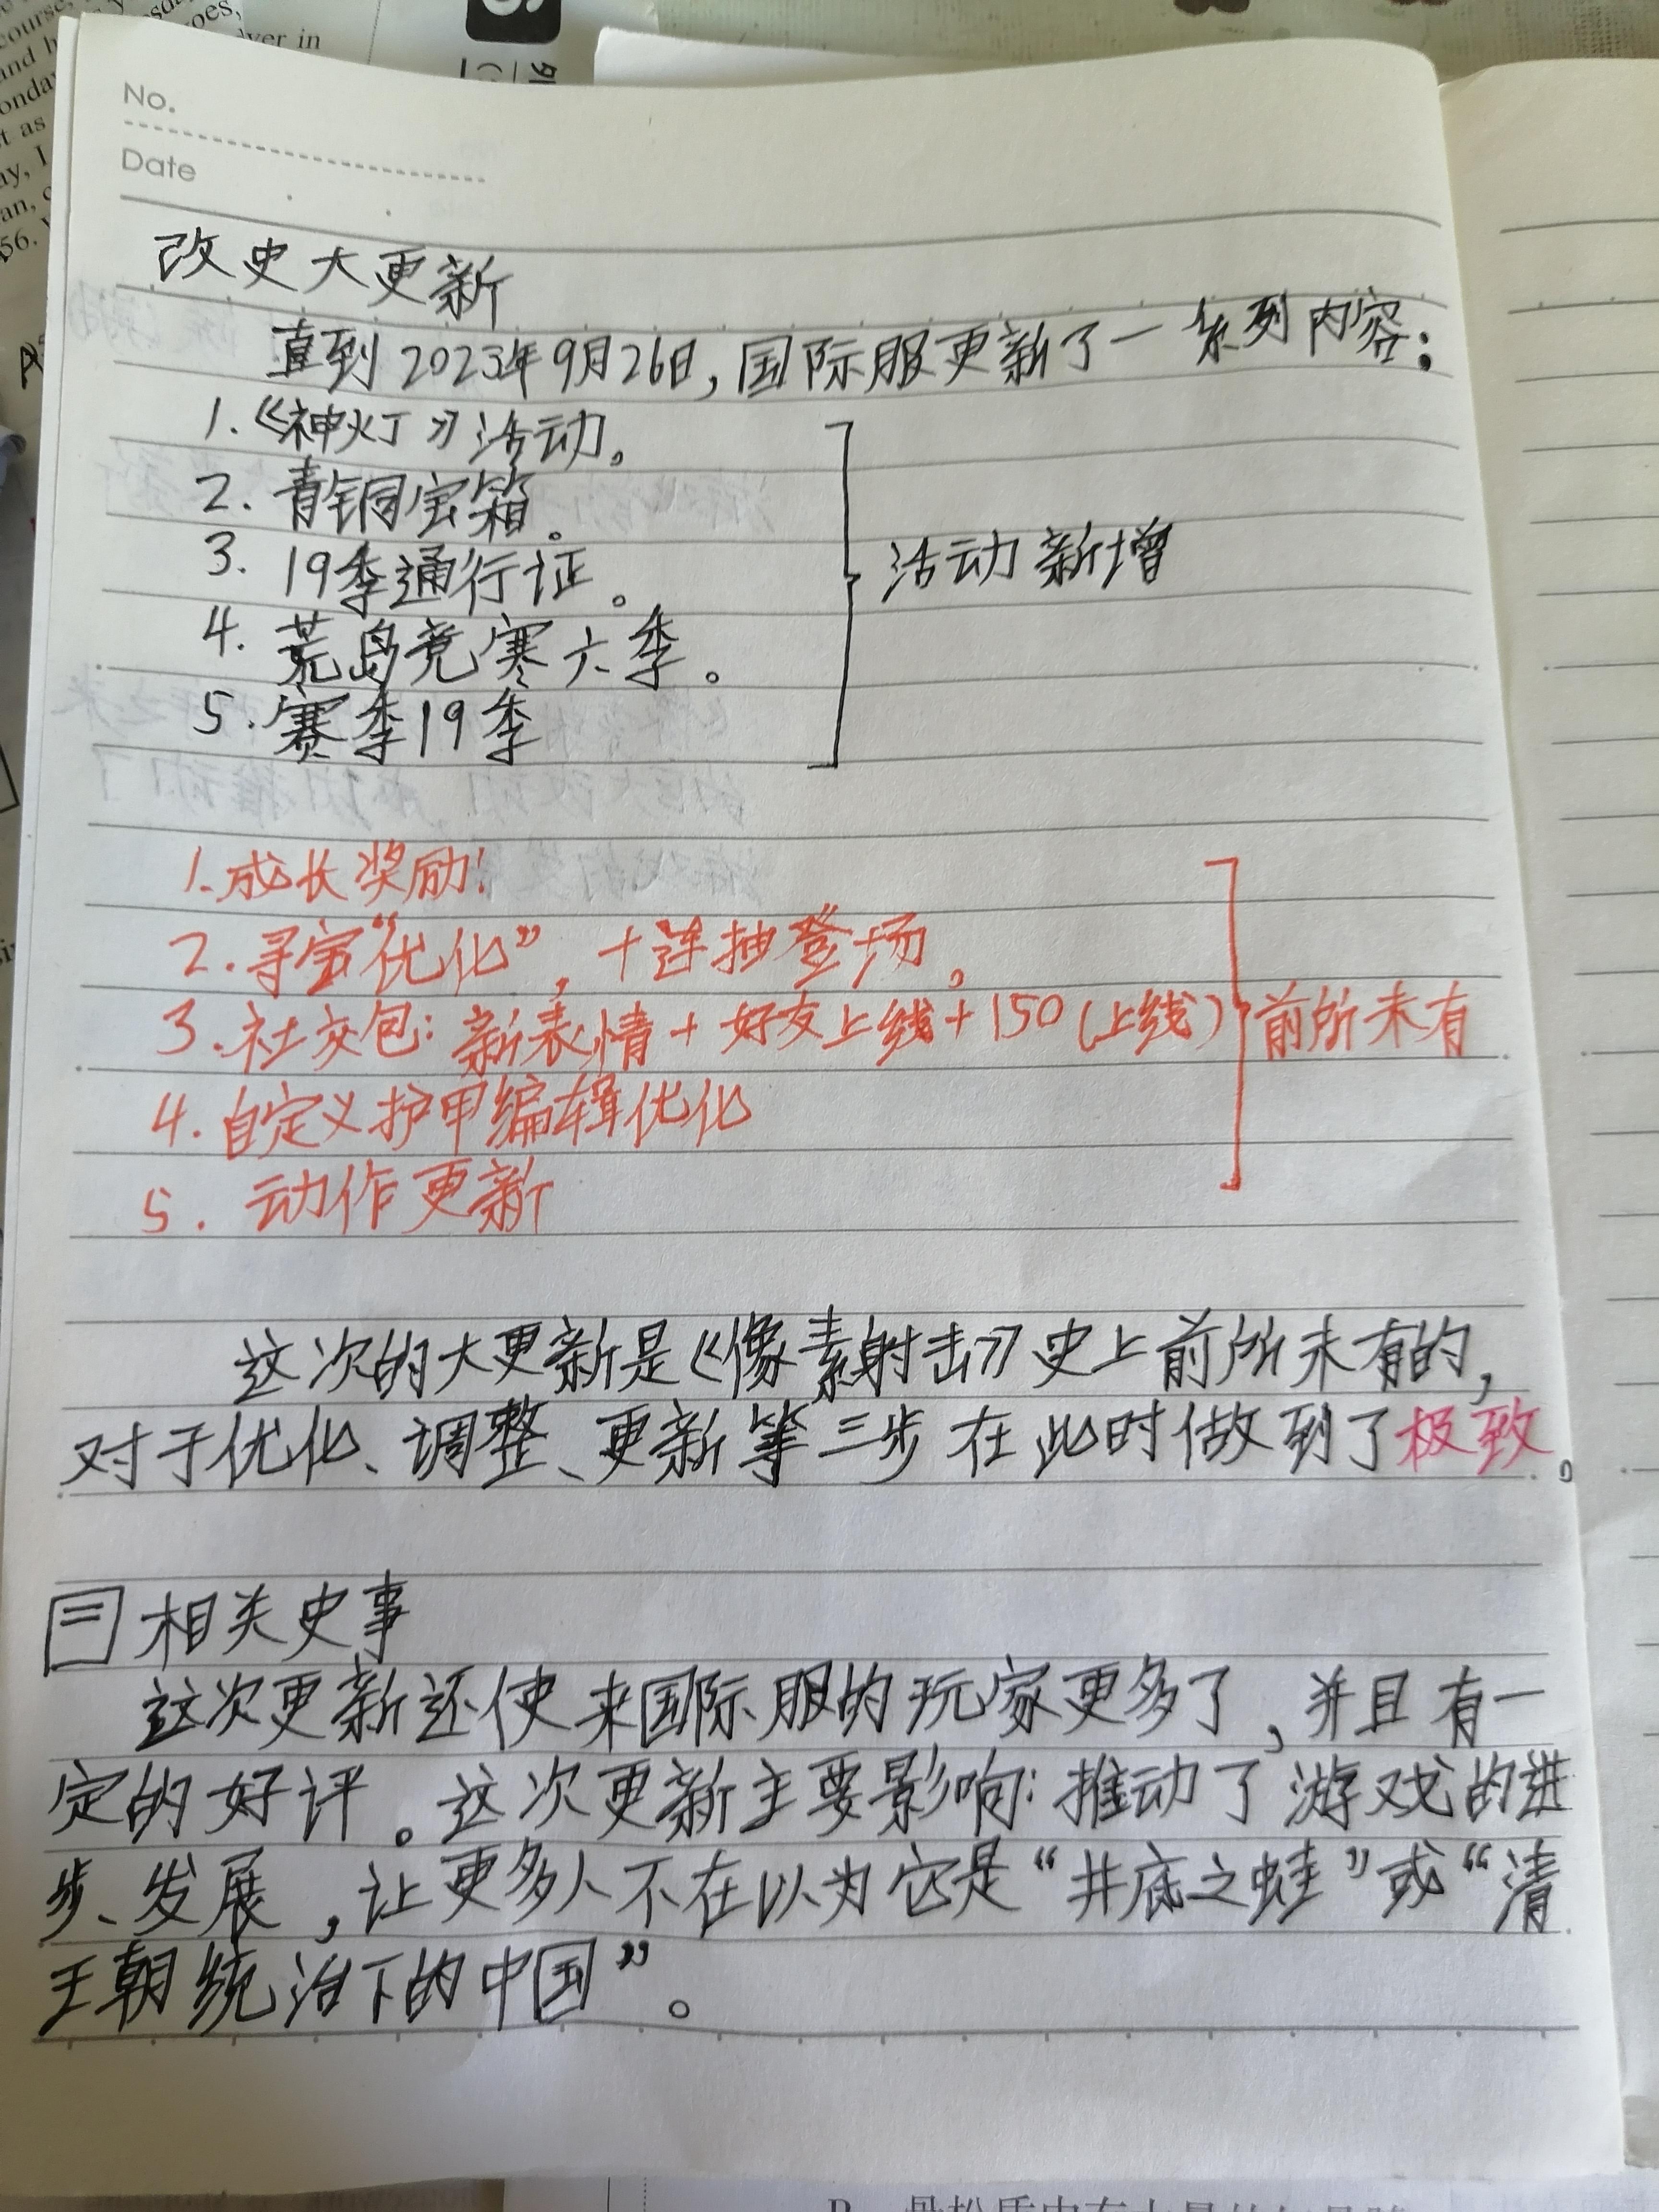 No.
Date
改史大更新
直到2023年9月26日,国际服更新了一系列内容:
1.《神灯》活动。
2.青铜宝箱。
3.19季通行证。
4.荒岛竞寒六季。
5.赛季19季
活动新增
1.成长奖励!
2.寻宝“优化”,十连抽登场。
3.社交包:新表情+好友上线+150(上线)
前所未有
4.自定义护甲编辑优化
5.动作更新
这次的大更新是《像素射击》史上前所未有的,
对于优化、调整、更新等三步在此时做到了极致。
三 相关史事
这次更新还使来国际服的玩家更多了,并且有一
定的好评。这次更新主要影响:推动了游戏的进
步、发展,让更多人不在以为它是“井底之蛙”或“清
王朝统治下的中国”。